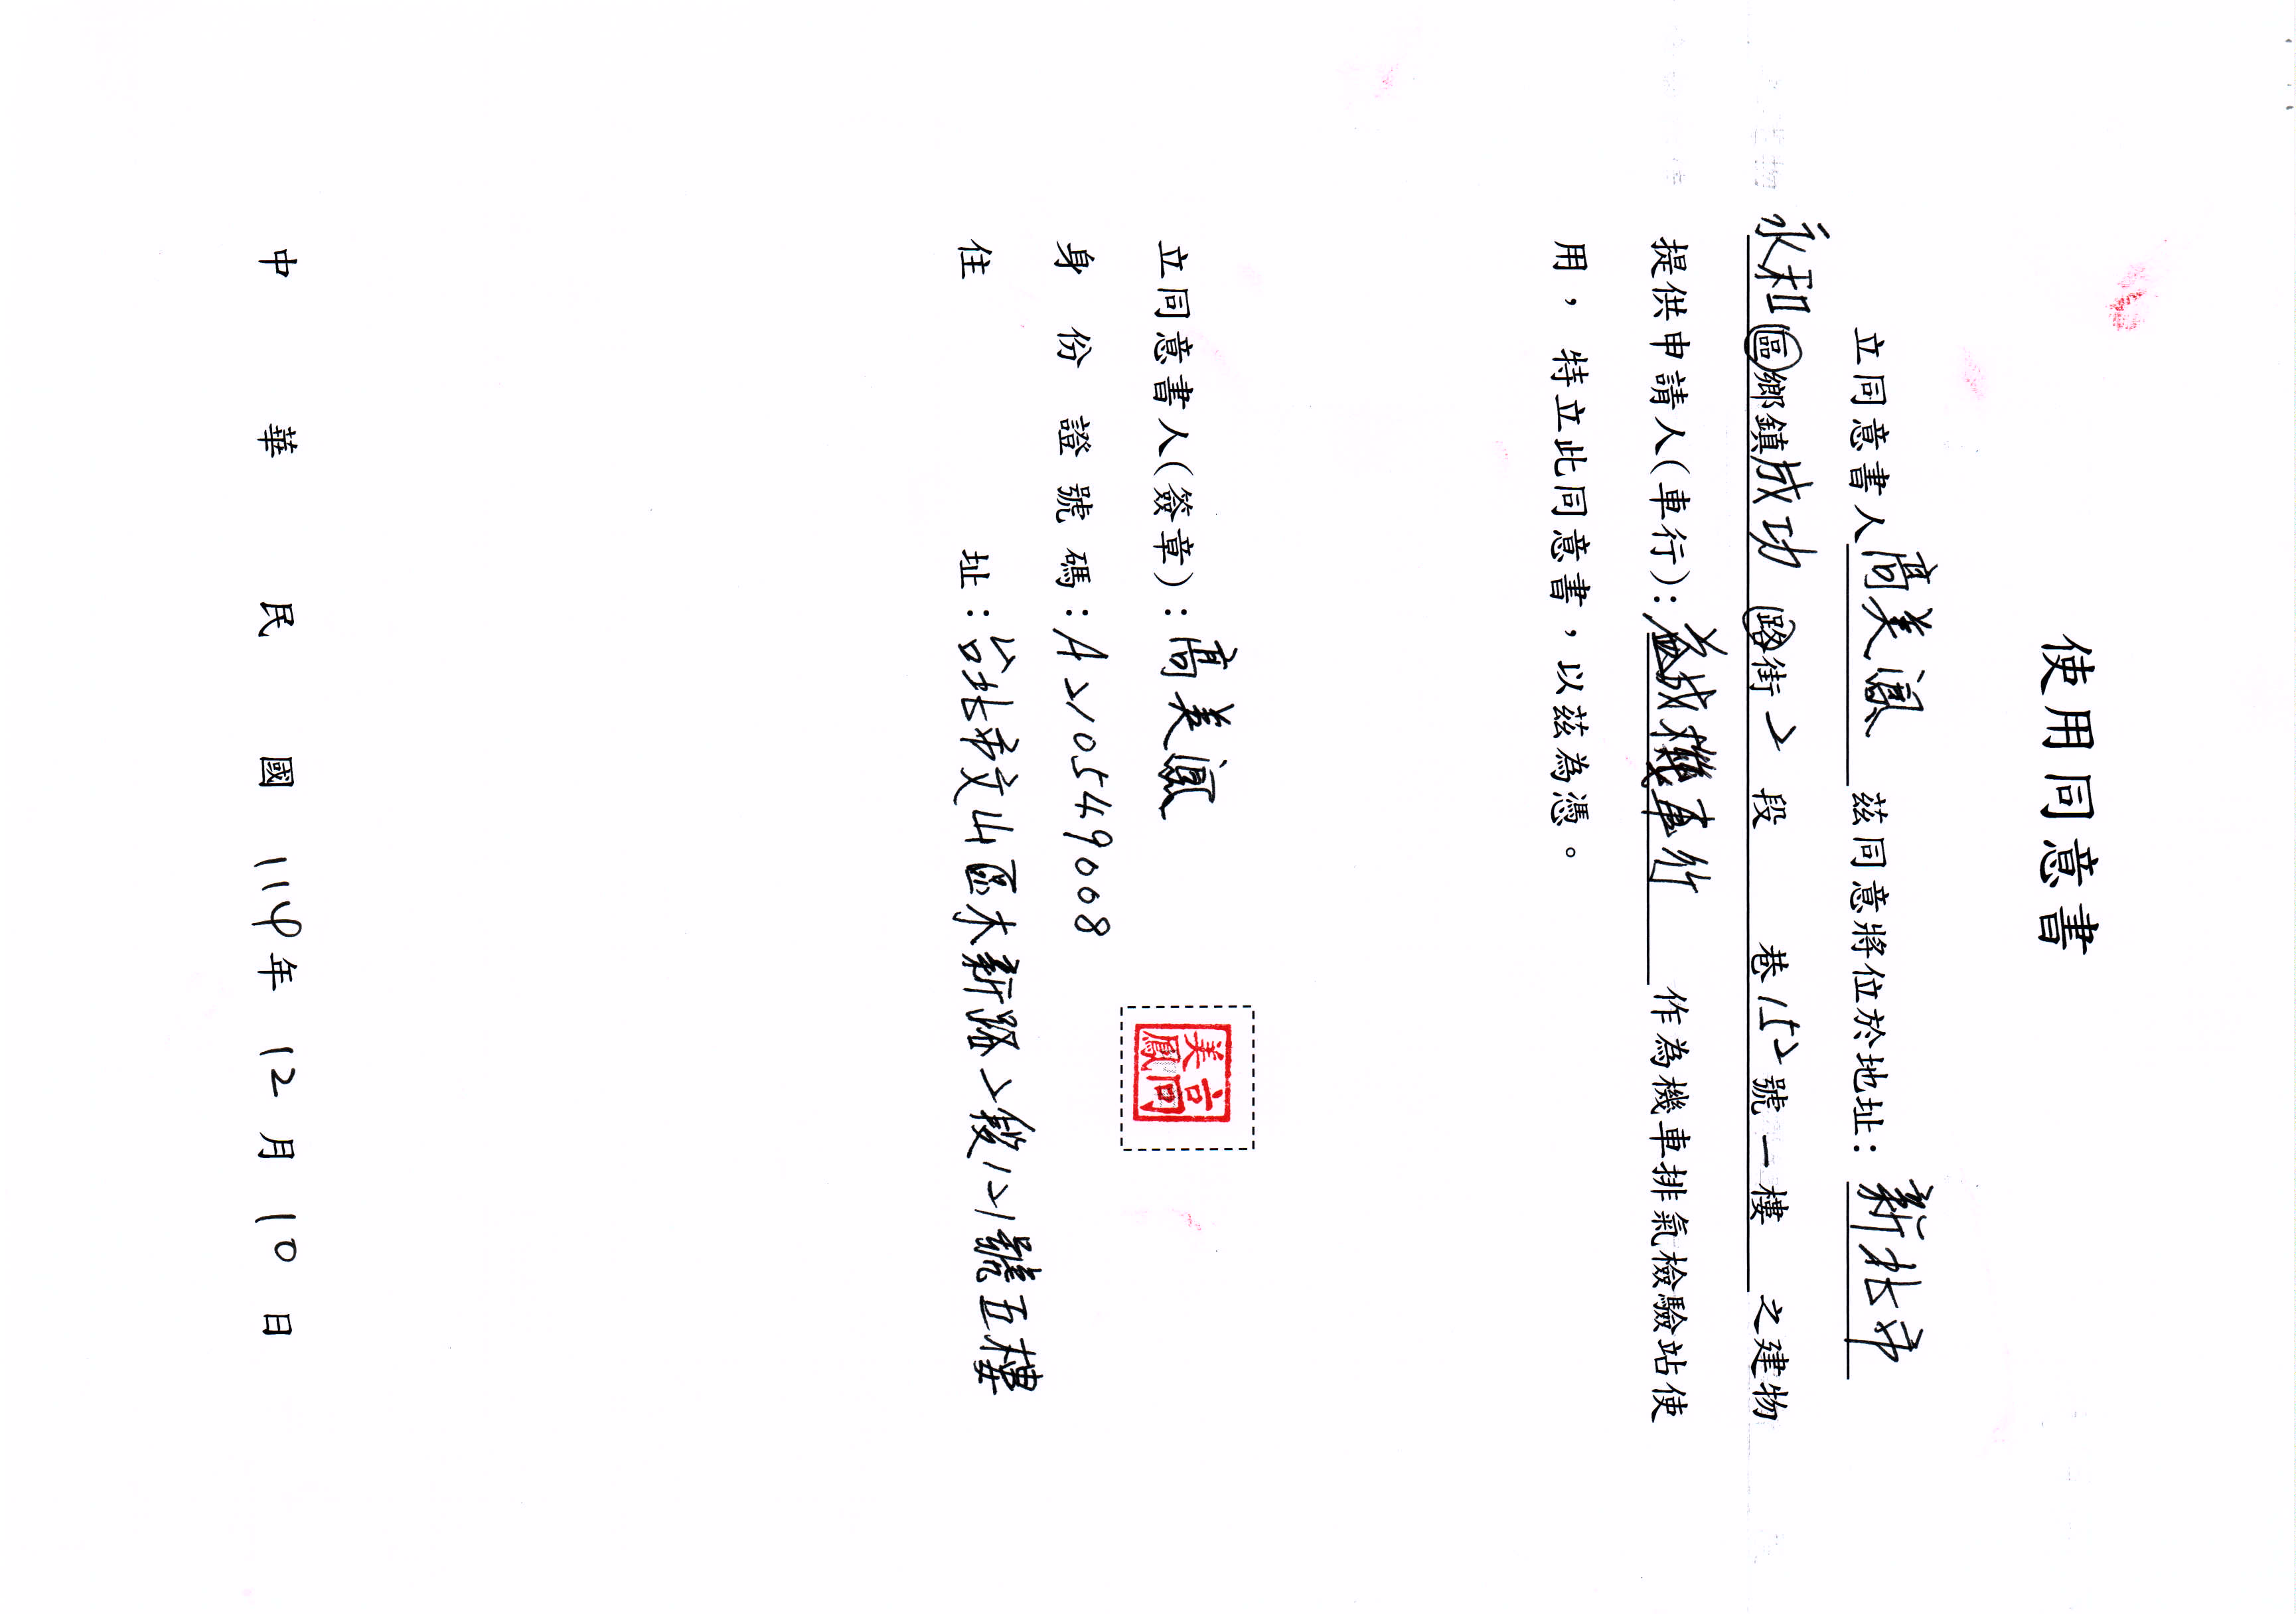 使用同意書
立同意書人高美鳳 茲同意將位於地址：新北市
永和區鄉鎮成功路街2段 巷152號一樓 之建物
提供申請人(車行)：益成機車行 作為機車排氣檢驗站使
用，特立此同意書，以茲為憑。
立同意書人(簽章)：高美鳳
高美鳳
身份證號碼：A210549008
住址：台北市文山區木新路2段121號五樓
中華民國114年12月10日